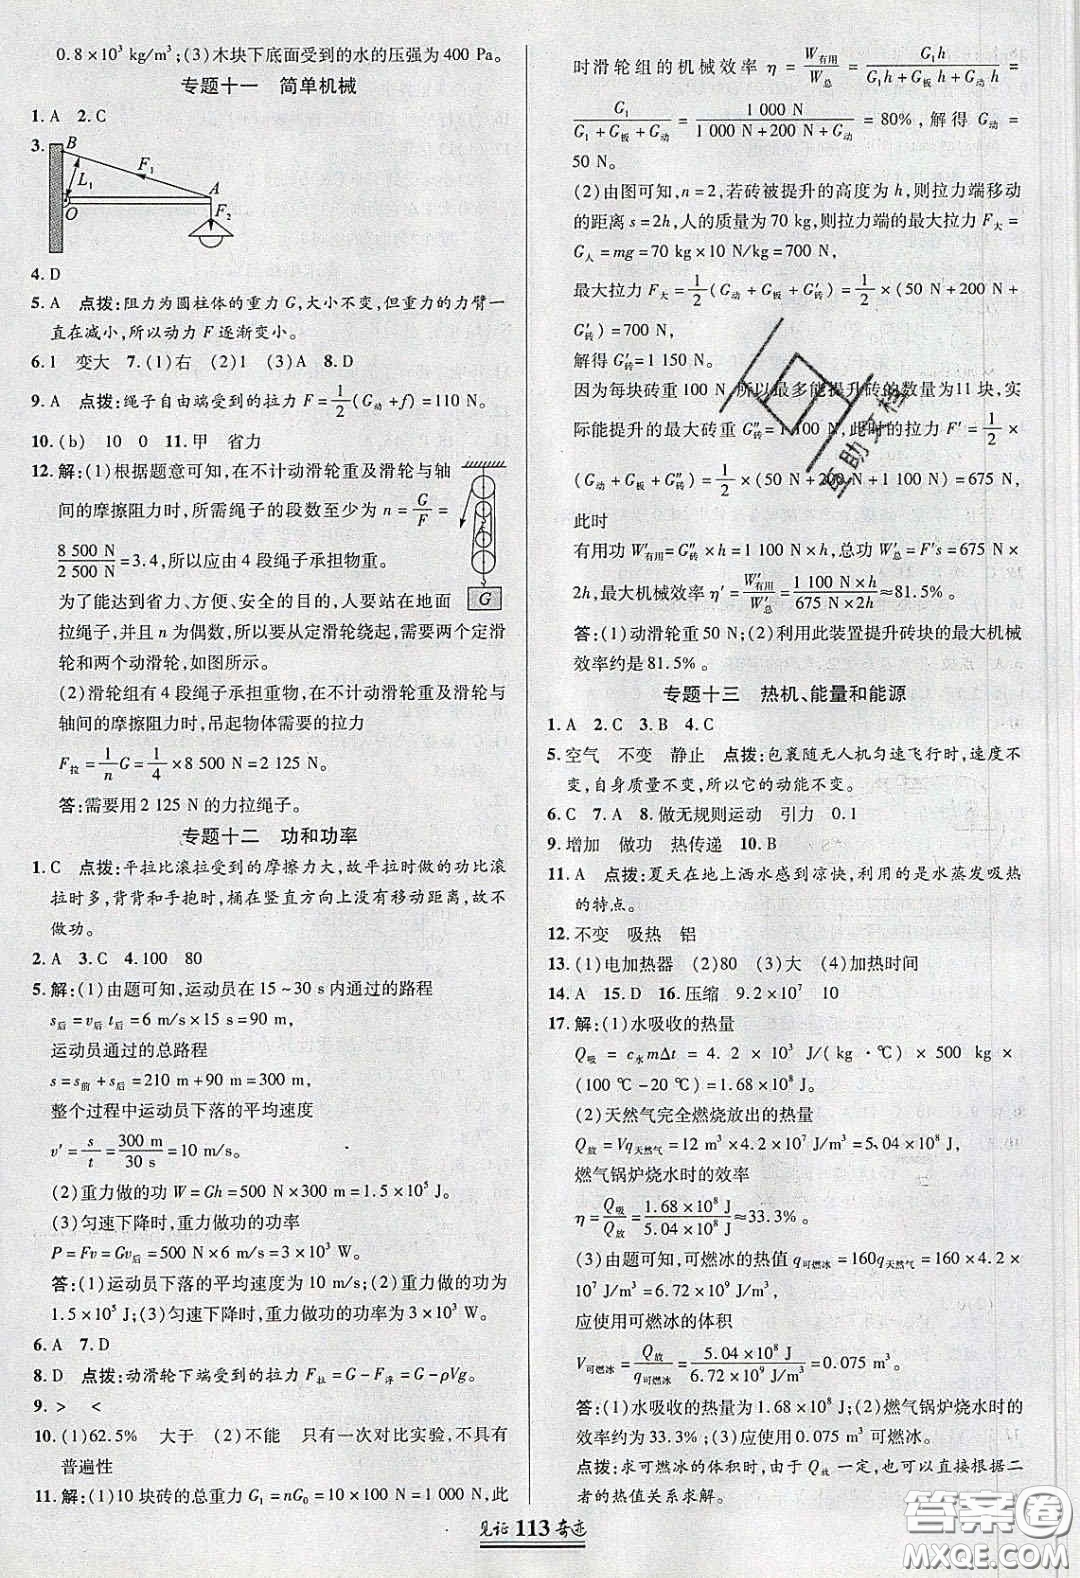 0.8×10³ kg/m³;(3)木块下底面受到的水的压强为 400 Pa。
专题十一 简单机械
1. A 2. C
3.
B
F₁
L₁
A
O
F₂
4. D
5. A 点拨:阻力为圆柱体的重力 G,大小不变,但重力的力臂一
直在减小,所以动力 F 逐渐变小。
6. 1 变大 7. (1)右 (2)1 (3)A 8. D
9. A 点拨:绳子自由端受到的拉力 F=1/2(G动+f)=110 N。
10. (b) 10 0 11. 甲 省力
12. 解:(1)根据题意可知,在不计动滑轮重及滑轮与轴
间的摩擦阻力时,所需绳子的段数至少为 n=G/F=
8 500 N/2 500 N=3.4,所以应由 4 段绳子承担物重。
为了能达到省力、方便、安全的目的,人要站在地面
拉绳子,并且 n 为偶数,所以要从定滑轮绕起,需要两个定滑
轮和两个动滑轮,如图所示。
G
(2)滑轮组有 4 段绳子承担重物,在不计动滑轮重及滑轮与
轴间的摩擦阻力时,吊起物体需要的拉力
F拉=1/n G=1/4×8 500 N=2 125 N。
答:需要用 2 125 N 的力拉绳子。
专题十二 功和功率
1. C 点拨:平拉比滚拉受到的摩擦力大,故平拉时做的功比滚
拉时多,背背和手抱时,桶在竖直方向上没有移动距离,故不
做功。
2. A 3. C 4. 100 80
5. 解:(1)由题可知,运动员在 15~30 s 内通过的路程
s后=v后 t后=6 m/s×15 s=90 m,
运动员通过的总路程
s=s前+s后=210 m+90 m=300 m,
整个过程中运动员下落的平均速度
v′=s/t=300 m/30 s=10 m/s。
(2)重力做的功 W=Gh=500 N×300 m=1.5×10⁵ J。
(3)匀速下降时,重力做功的功率
P=Fv=Gv后=500 N×6 m/s=3×10³ W。
答:(1)运动员下落的平均速度为 10 m/s;(2)重力做的功为
1.5×10⁵ J;(3)匀速下降时,重力做功的功率为 3×10³ W。
6. A 7. D
8. D 点拨:动滑轮下端受到的拉力 F拉=G−F浮=G−ρVg。
9. > <
10. (1)62.5% 大于 (2)不能 只有一次对比实验,不具有
普遍性
11. 解:(1)10 块砖的总重力 G₁=nG₀=10×100 N=1 000 N,此
时滑轮组的机械效率 η=W有用/W总=G₁h/(G₁h+G板h+G动h)=
G₁/(G₁+G板+G动)=1 000 N/(1 000 N+200 N+G动)=80%,解得 G动=
50 N。
(2)由图可知,n=2,若砖被提升的高度为 h,则拉力端移动
的距离 s=2h,人的质量为 70 kg,则拉力端的最大拉力 F大=
G人=mg=70 kg×10 N/kg=700 N,
最大拉力 F大=1/2(G动+G板+G′砖)=1/2×(50 N+200 N+
G′砖)=700 N,
解得 G′砖=1 150 N。
因为每块砖重 100 N,所以最多能提升砖的数量为 11 块,实
际能提升的最大砖重 G″砖=1 100 N,此时的拉力 F′=1/2×
(G动+G板+G″砖)=1/2×(50 N+200 N+1 100 N)=675 N,
此时
有用功 W′有用=G″砖×h=1 100 N×h,总功 W′总=F′s=675 N×
2h,最大机械效率 η′=W′有用/W′总=1 100 N×h/675 N×2h≈81.5%。
答:(1)动滑轮重 50 N;(2)利用此装置提升砖块的最大机械
效率约是 81.5%。
专题十三 热机、能量和能源
1. A 2. C 3. B 4. C
5. 空气 不变 静止 点拨:包裹随无人机匀速飞行时,速度不
变,自身质量不变,所以它的动能不变。
6. C 7. A 8. 做无规则运动 引力 0.1
9. 增加 做功 热传递 10. B
11. A 点拨:夏天在地上洒水感到凉快,利用的是水蒸发吸热
的特点。
12. 不变 吸热 铝
13. (1)电加热器 (2)80 (3)大 (4)加热时间
14. A 15. D 16. 压缩 9.2×10⁷ 10
17. 解:(1)水吸收的热量
Q吸=c水mΔt=4.2×10³ J/(kg·℃)×500 kg×
(100 ℃−20 ℃)=1.68×10⁸ J;
(2)天然气完全燃烧放出的热量
Q放=Vq天然气=12 m³×4.2×10⁷ J/m³=5.04×10⁸ J,
燃气锅炉烧水时的效率
η=Q吸/Q放=1.68×10⁸ J/5.04×10⁸ J≈33.3%。
(3)由题可知,可燃冰的热值 q可燃冰=160q天然气=160×4.2×
10⁷ J/m³=6.72×10⁹ J/m³,
应使用可燃冰的体积
V可燃冰=Q放/q可燃冰=5.04×10⁸ J/6.72×10⁹ J/m³=0.075 m³。
答:(1)水吸收的热量为 1.68×10⁸ J;(2)燃气锅炉烧水时的
效率约为 33.3%;(3)应使用 0.075 m³ 可燃冰。
点拨:求可燃冰的体积时,由于 Q放 一定,也可以直接根据二
者的热值关系求解。
见证 113 奇迹
答案圈
MXQE.COM